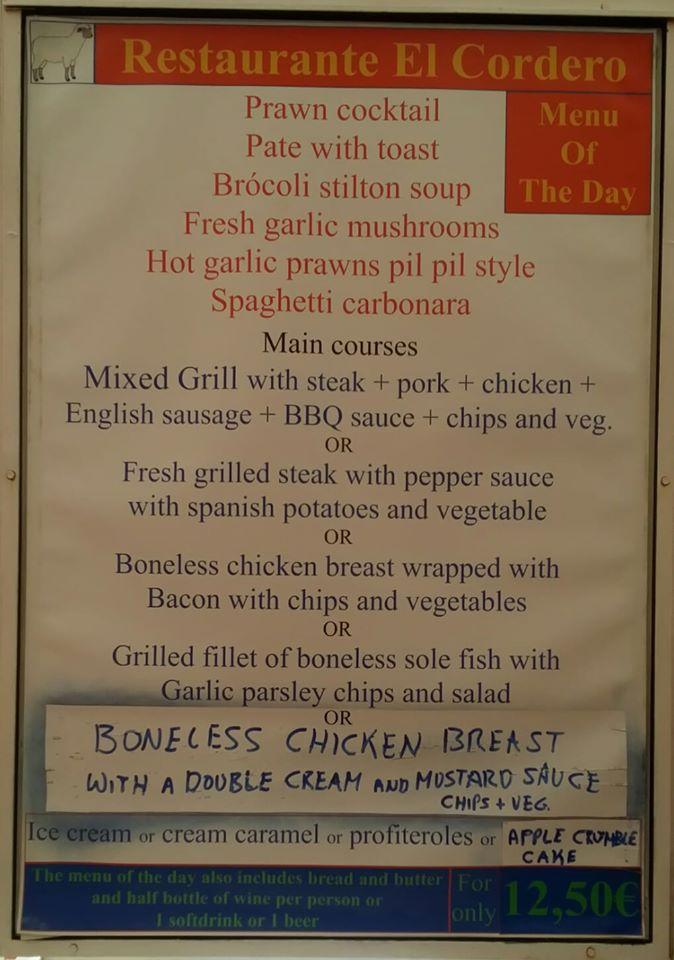 Restaurante El Cordero
Menu
Of
The Day
Prawn cocktail
Pate with toast
Brócoli stilton soup
Fresh garlic mushrooms
Hot garlic prawns pil pil style
Spaghetti carbonara
Main courses
Mixed Grill with steak + pork + chicken +
English sausage + BBQ sauce + chips and veg.
OR
Fresh grilled steak with pepper sauce
with spanish potatoes and vegetable
OR
Boneless chicken breast wrapped with
Bacon with chips and vegetables
OR
Grilled fillet of boneless sole fish with
Garlic parsley chips and salad
OR
BONECESS CHICKEN BREAST
WITH A DOUBLE CREAM AND MUSTARD SAUCE
CHIPS + VEG.
Ice cream or cream caramel or profiteroles or APPLE CRUMBLE
CAKE
The menu of the day also includes bread and butter
and half bottle of wine per person or
1 softdrink or 1 beer
For
only
12,50€